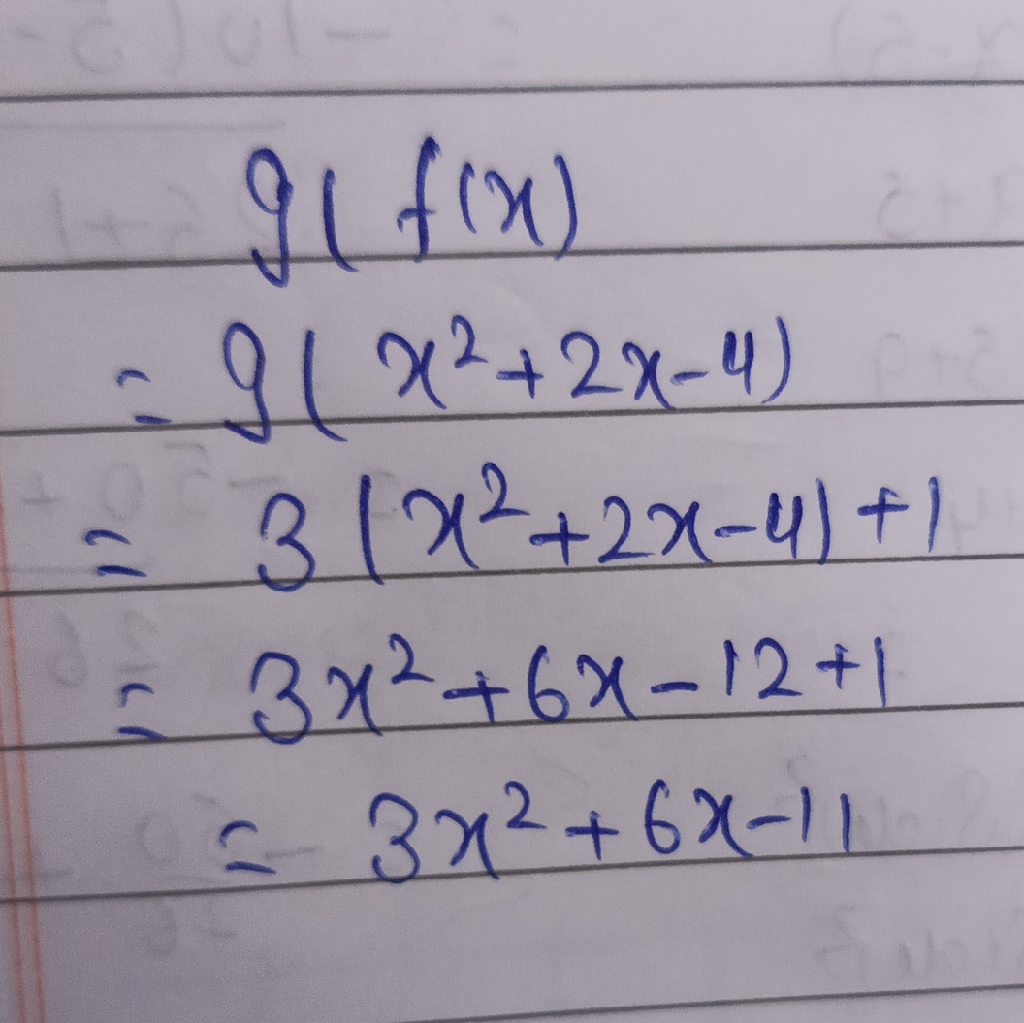 g( f(x)
= g( x²+2x-4)
= 3 (x²+2x-4) +1
= 3x²+6x-12+1
= 3x²+6x-11